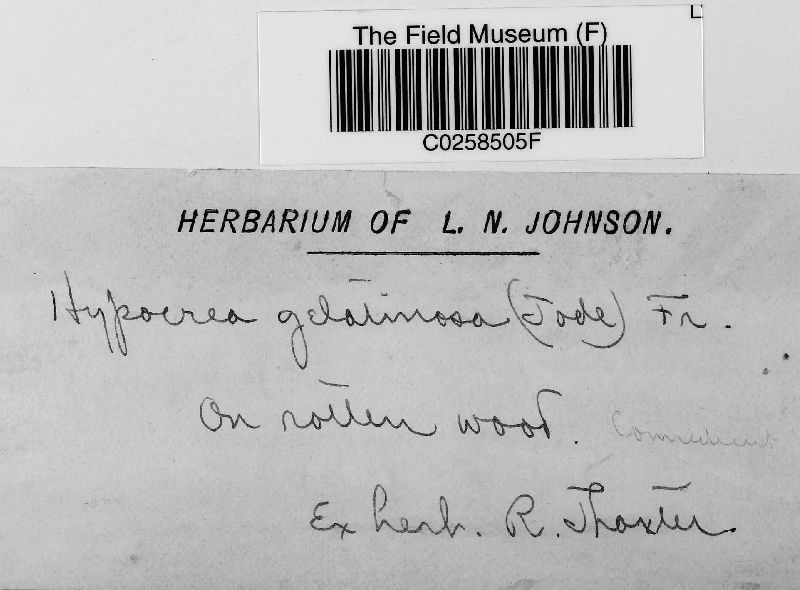 The Field Museum (F)
C0258505F
HERBARIUM OF L. N. JOHNSON.
Hypocrea gelatinosa (Tode) Fr.
On rotten wood. Connecticut
Ex herb. R. Thaxter.